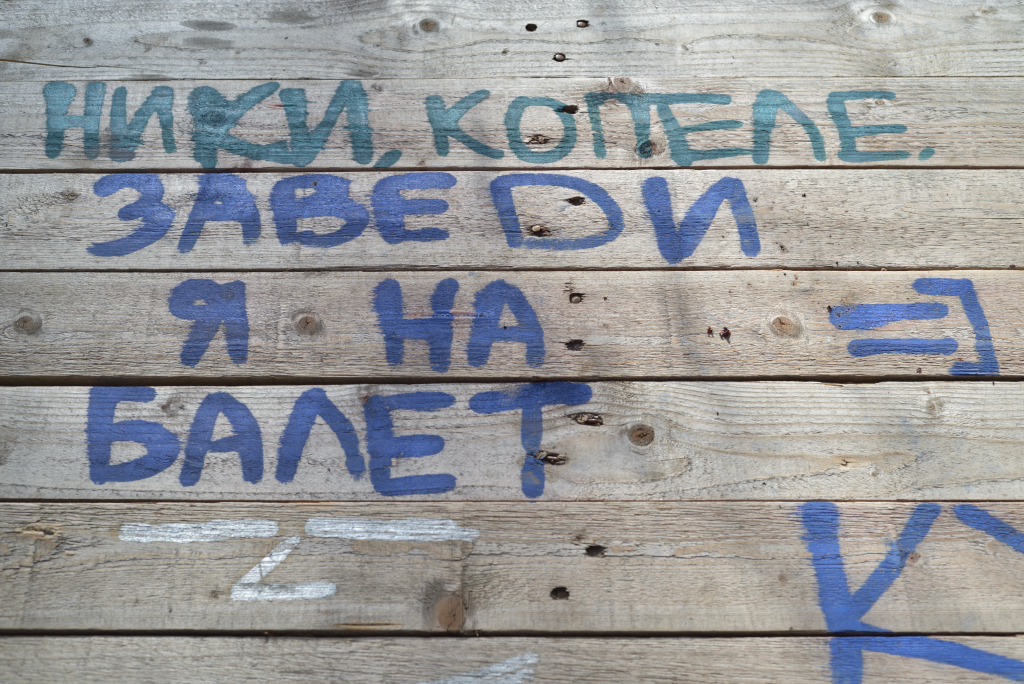 НИКИ, КОПЕЛЕ.
ЗАВЕДИ
Я НА =]
БАЛЕТ